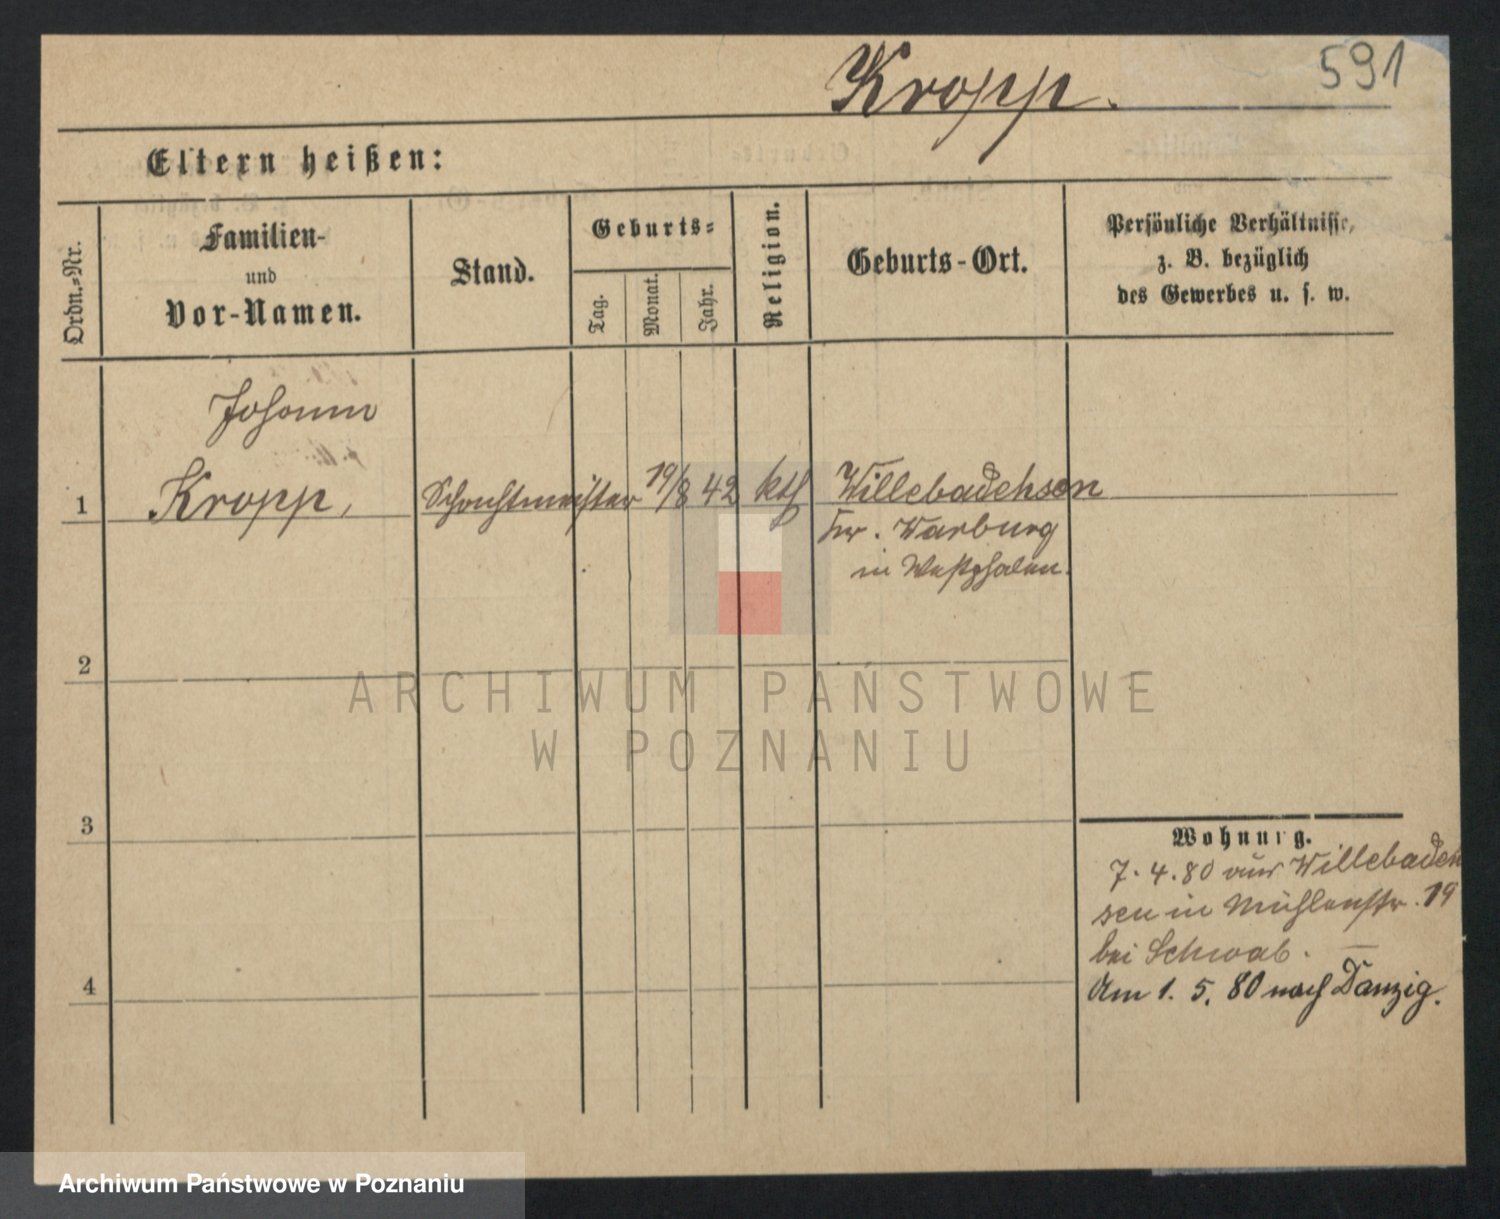 Kropp.
591
Eltern heißen:
Ordn.-Nr.
Familien-
und
Vor-Namen.
Stand.
Geburts-
Tag.
Monat.
Jahr.
Religion.
Geburts-Ort.
Persönliche Verhältnisse,
z. B. bezüglich
des Gewerbes u. s. w.
Johann
1 Kropp, Schachtmeister 19/8 42 kth Willebadehsen
Kr. Warburg
in Westphalen.
2
3
4
Wohnung.
7.4.80 aus Willebaden
sen in Mühlenstr. 19
bei Schwab. —
Am 1. 5. 80 nach Danzig.
ARCHIWUM PAŃSTWOWE
W POZNANIU
Archiwum Państwowe w Poznaniu